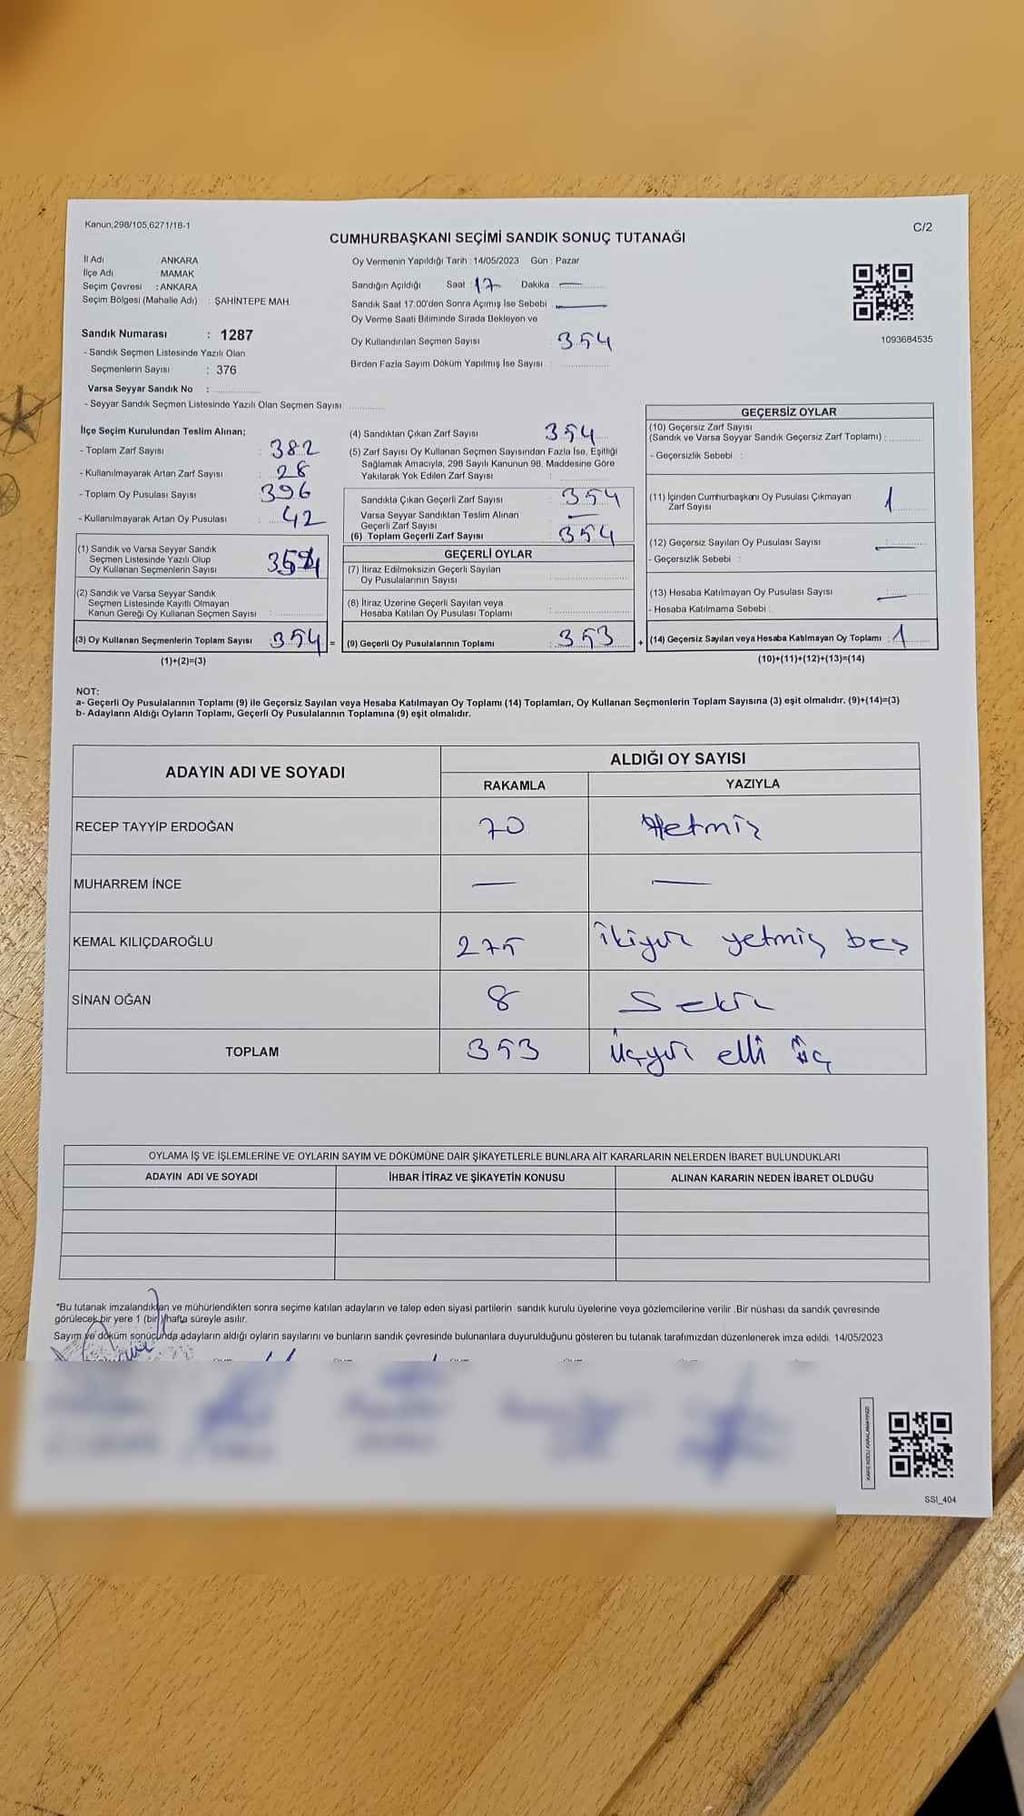 Kanun,298/105,6271/16-1
C/2
CUMHURBAŞKANI SEÇİMİ SANDIK SONUÇ TUTANAĞI
İl Adı ANKARA
İlçe Adı MAMAK
Seçim Çevresi : ANKARA
Seçim Bölgesi (Mahalle Adı) ŞAHİNTEPE MAH.
Sandık Numarası : 1287
- Sandık Seçmen Listesinde Yazılı Olan
Seçmenlerin Sayısı : 376
Varsa Seyyar Sandık No :
- Seyyar Sandık Seçmen Listesinde Yazılı Olan Seçmen Sayısı
Oy Vermenin Yapıldığı Tarih : 14/05/2023 Gün : Pazar
Sandığın Açıldığı Saat : 17 Dakika : —
Sandık Saat 17:00'den Sonra Açımış İse Sebebi —
Oy Verme Saati Bitiminde Sırada Bekleyen ve
Oy Kullandırılan Seçmen Sayısı : 354
Birden Fazla Sayım Döküm Yapılmış İse Sayısı :
1093684535
İlçe Seçim Kurulundan Teslim Alınan;
- Toplam Zarf Sayısı : 382
- Kullanılmayarak Artan Zarf Sayısı : 28
- Toplam Oy Pusulası Sayısı 396
- Kullanılmayarak Artan Oy Pusulası : 42
(1) Sandık ve Varsa Seyyar Sandık
Seçmen Listesinde Yazılı Olup
Oy Kullanan Seçmenlerin Sayısı 354
(2) Sandık ve Varsa Seyyar Sandık
Seçmen Listesinde Kayıtlı Olmayan
Kanun Gereği Oy Kullanan Seçmen Sayısı :
(3) Oy Kullanan Seçmenlerin Toplam Sayısı 354 =
(1)+(2)=(3)
(4) Sandıktan Çıkan Zarf Sayısı 354
(5) Zarf Sayısı Oy Kullanan Seçmen Sayısından Fazla İse, Eşitliği
Sağlamak Amacıyla, 298 Sayılı Kanunun 98. Maddesine Göre
Yakılarak Yok Edilen Zarf Sayısı :
Sandıkta Çıkan Geçerli Zarf Sayısı : 354
Varsa Seyyar Sandıktan Teslim Alınan
Geçerli Zarf Sayısı —
(6) Toplam Geçerli Zarf Sayısı : 354
GEÇERLİ OYLAR
(7) İtiraz Edilmeksizin Geçerli Sayılan
Oy Pusulalarının Sayısı
(8) İtiraz Üzerine Geçerli Sayılan veya
Hesaba Katılan Oy Pusulası Toplamı :
(9) Geçerli Oy Pusulalarının Toplamı : 353 +
GEÇERSİZ OYLAR
(10) Geçersiz Zarf Sayısı
(Sandık ve Varsa Seyyar Sandık Geçersiz Zarf Toplamı) :
- Geçersizlik Sebebi :
(11) İçinden Cumhurbaşkanı Oy Pusulası Çıkmayan
Zarf Sayısı 1
(12) Geçersiz Sayılan Oy Pusulası Sayısı —
- Geçersizlik Sebebi :
(13) Hesaba Katılmayan Oy Pusulası Sayısı —
- Hesaba Katılmama Sebebi :
(14) Geçersiz Sayılan veya Hesaba Katılmayan Oy Toplamı : 1
(10)+(11)+(12)+(13)=(14)
NOT:
a- Geçerli Oy Pusulalarının Toplamı (9) ile Geçersiz Sayılan veya Hesaba Katılmayan Oy Toplamı (14) Toplamları, Oy Kullanan Seçmenlerin Toplam Sayısına (3) eşit olmalıdır. (9)+(14)=(3)
b- Adayların Aldığı Oyların Toplamı, Geçerli Oy Pusulalarının Toplamına (9) eşit olmalıdır.
ADAYIN ADI VE SOYADI ALDIĞI OY SAYISI
RAKAMLA YAZIYLA
RECEP TAYYİP ERDOĞAN 70 Yetmiş
MUHARREM İNCE — —
KEMAL KILIÇDAROĞLU 275 ikiyüz yetmiş beş
SİNAN OĞAN 8 Sekiz
TOPLAM 353 Üçyüz elli üç
OYLAMA İŞ VE İŞLEMLERİNE VE OYLARIN SAYIM VE DÖKÜMÜNE DAİR ŞİKAYETLERLE BUNLARA AİT KARARLARIN NELERDEN İBARET BULUNDUKLARI
ADAYIN ADI VE SOYADI İHBAR İTİRAZ VE ŞİKAYETİN KONUSU ALINAN KARARIN NEDEN İBARET OLDUĞU
*Bu tutanak imzalandıktan ve mühürlendikten sonra seçime katılan adayların ve talep eden siyasi partilerin sandık kurulu üyelerine veya gözlemcilerine verilir .Bir nüshası da sandık çevresinde
görülecek bir yere 1 (bir) hafta süreyle asılır.
Sayım ve döküm sonucunda adayların aldığı oyların sayılarını ve bunların sandık çevresinde bulunanlara duyurulduğunu gösteren bu tutanak tarafımızdan düzenlenerek imza edildi. 14/05/2023
SSI_404